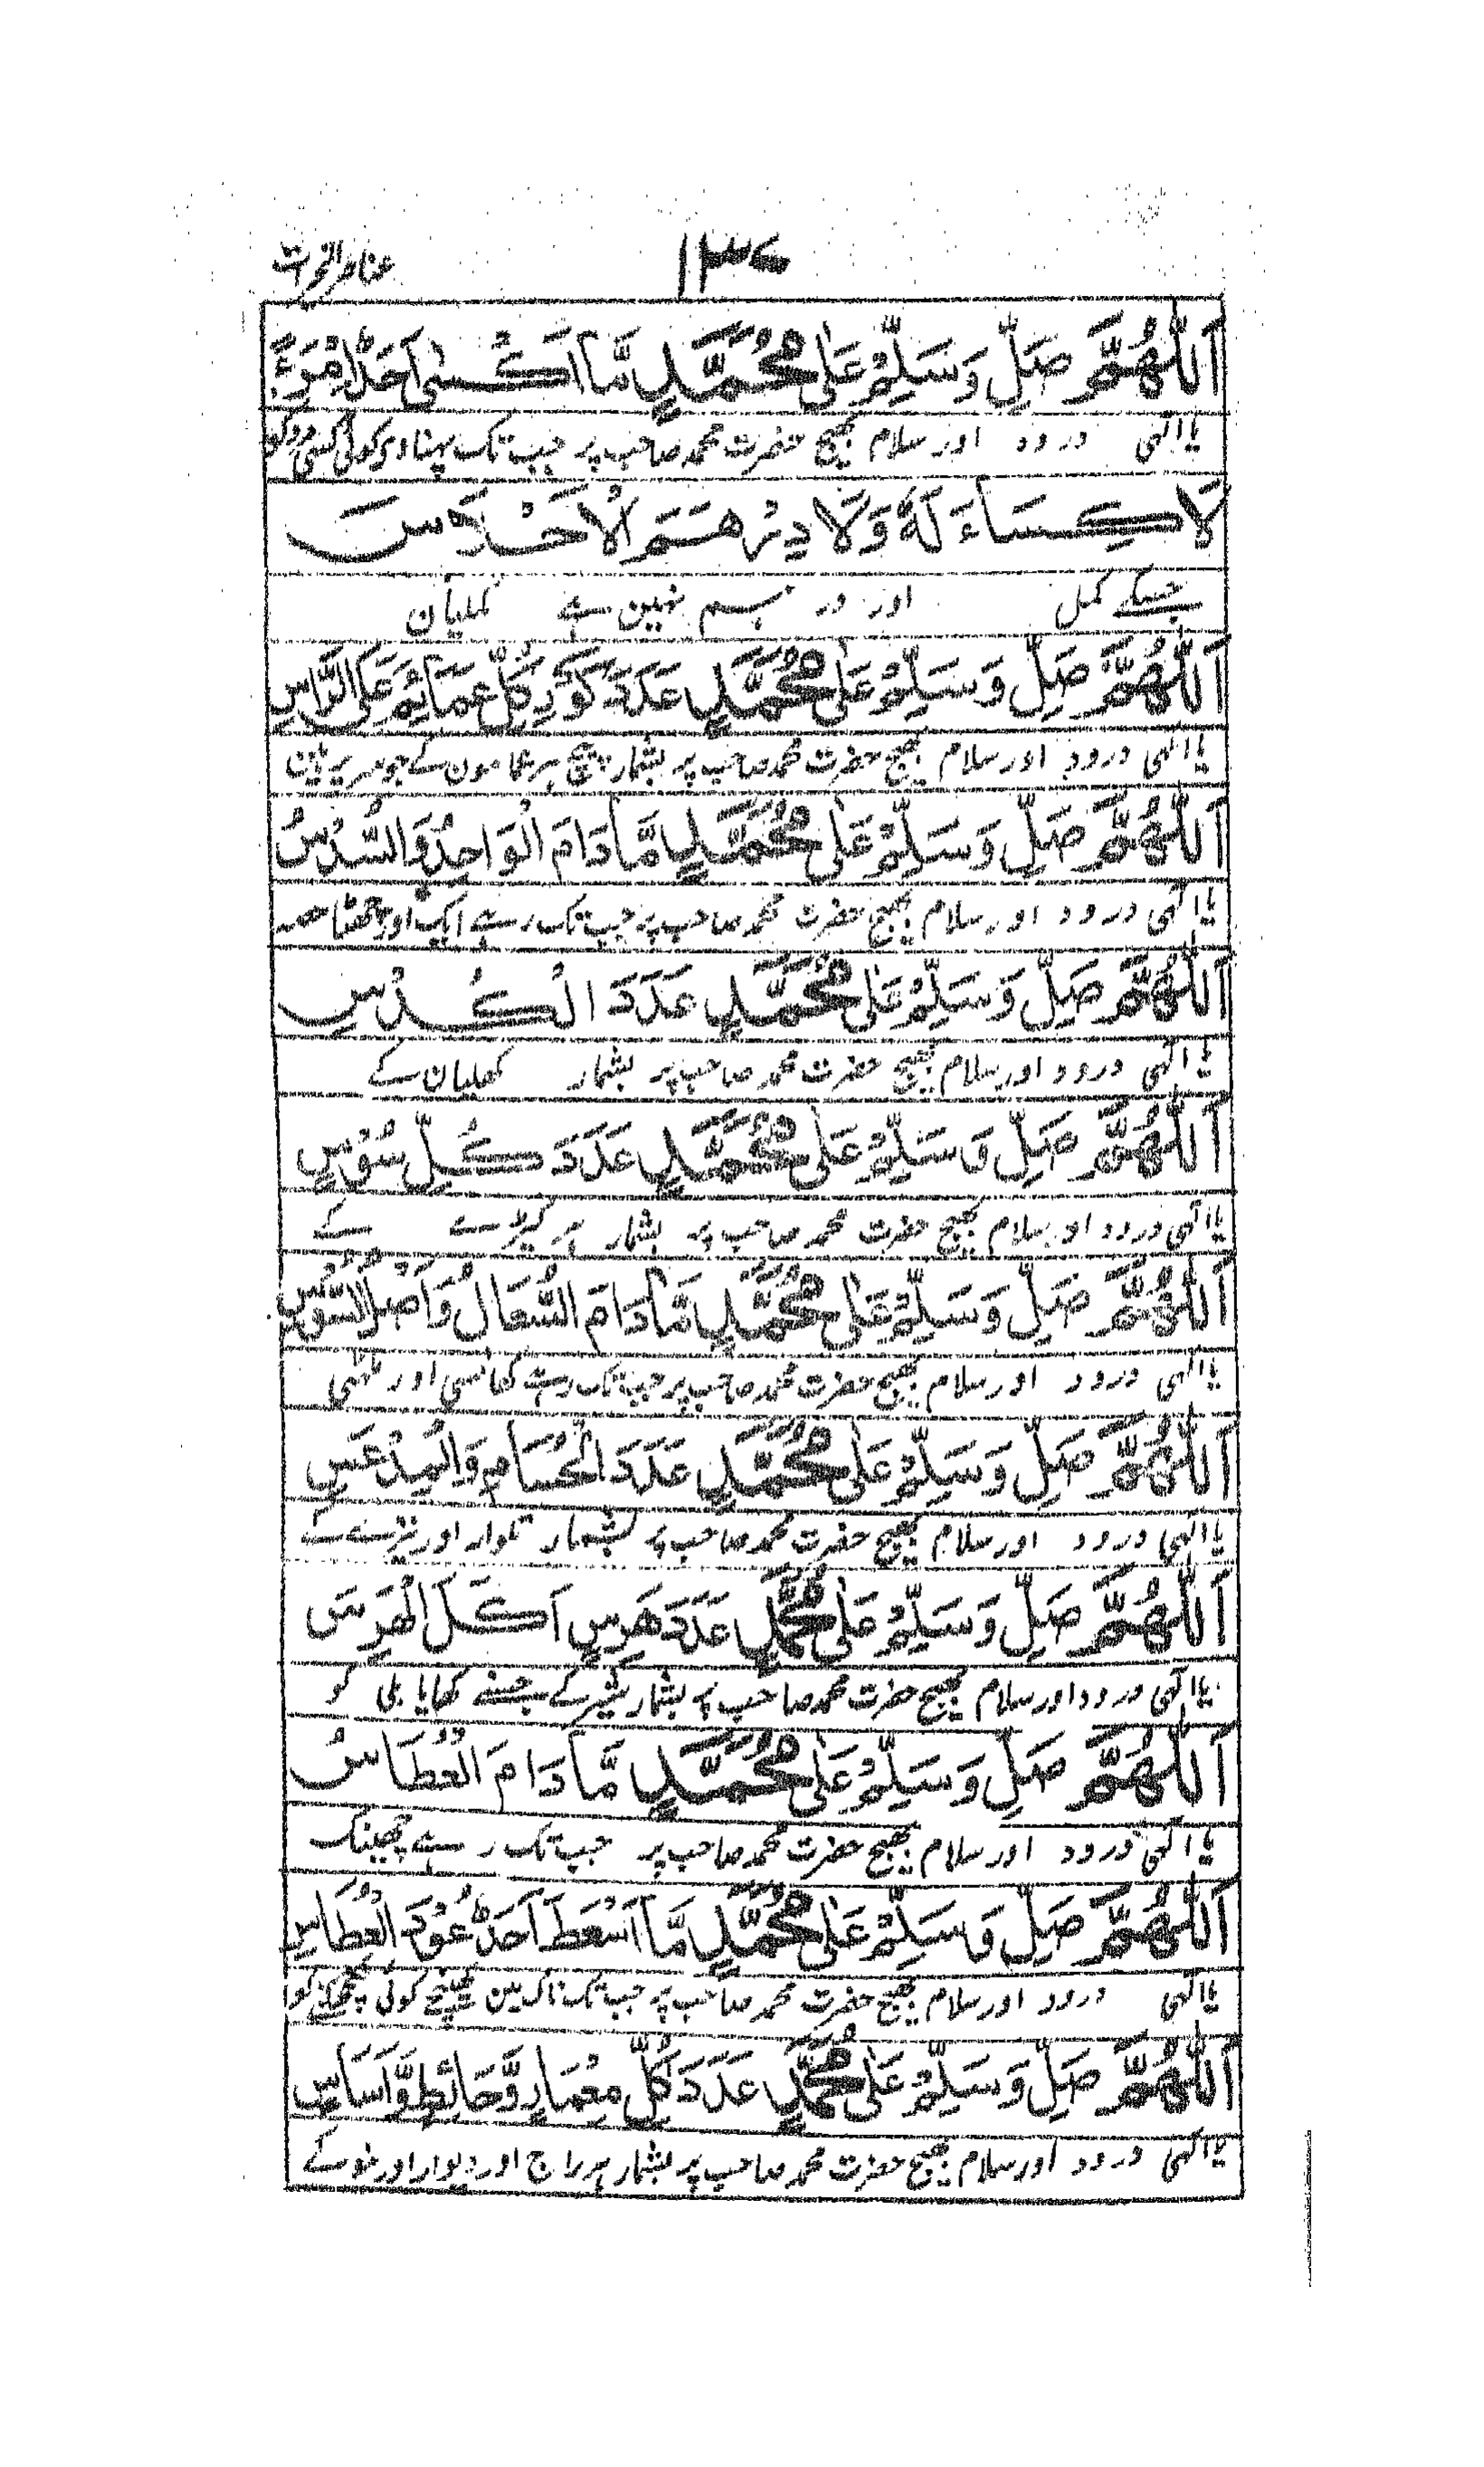 ۱۳۷
عناصر الخیرات
اَللّٰهُمَّ صَلِّ وَسَلِّمْ عَلٰى مُحَمَّدٍ مَّا اَكْسٰى اَحَدٌ امْرَءً
یا الٰہی درود اور سلام بھیج حضرت محمد صاحب پر جب تک پہناوی کوئی کسی مرد کو
لَا كِسَاءَ لَهٗ وَلَا دِرْهَمَ الْاَحَادَسَ
جسکے کمل اور درہم نہین ہے کملیان
اَللّٰهُمَّ صَلِّ وَسَلِّمْ عَلٰى مُحَمَّدٍ عَدَدَ كَوْرِ كُلِّ عَمَائِمَ عَلَى الرَّاسِ
یا الٰہی درود اور سلام بھیج حضرت محمد صاحب پر بشمار پیچ ہر عمامون کے جو سر پر ہین
اَللّٰهُمَّ صَلِّ وَسَلِّمْ عَلٰى مُحَمَّدٍ مَّا دَامَ الْوَاحِدُ وَالسُّدُسُ
یا الٰہی درود اور سلام بھیج حضرت محمد صاحب پر جب تک رہے ایک اور چھٹا حصہ
اَللّٰهُمَّ صَلِّ وَسَلِّمْ عَلٰى مُحَمَّدٍ عَدَدَ الْكُدْسِ
یا الٰہی درود اور سلام بھیج حضرت محمد صاحب پر بشمار کھلیان کے
اَللّٰهُمَّ صَلِّ وَسَلِّمْ عَلٰى مُحَمَّدٍ عَدَدَ كُلِّ سُوْسٍ
یا الٰہی درود اور سلام بھیج حضرت محمد صاحب پر بشمار ہر کیڑے کے
اَللّٰهُمَّ صَلِّ وَسَلِّمْ عَلٰى مُحَمَّدٍ مَّا دَامَ السُّعَالُ وَاَصْلُ السُّوْسِ
یا الٰہی درود اور سلام بھیج حضرت محمد صاحب پر جب تک رہے کھانسی اور ملٹھی
اَللّٰهُمَّ صَلِّ وَسَلِّمْ عَلٰى مُحَمَّدٍ عَدَدَ الْحُسَامِ وَالْمِدْعَسِ
یا الٰہی درود اور سلام بھیج حضرت محمد صاحب پر بشمار تلوار اور نیزے کے
اَللّٰهُمَّ صَلِّ وَسَلِّمْ عَلٰى مُحَمَّدٍ عَدَدَ هَرِسٍ اَكَلَ الْهَرِسَ
یا الٰہی درود اور سلام بھیج حضرت محمد صاحب پر بشمار شیر کے جسنے کھایا بلی کو
اَللّٰهُمَّ صَلِّ وَسَلِّمْ عَلٰى مُحَمَّدٍ مَّا دَامَ الْعُطَاسُ
یا الٰہی درود اور سلام بھیج حضرت محمد صاحب پر جب تک رہے چھینک
اَللّٰهُمَّ صَلِّ وَسَلِّمْ عَلٰى مُحَمَّدٍ مَّا اَسْعَطَ اَحَدٌ عُوْدَ الْعُطَاسِ
یا الٰہی درود اور سلام بھیج حضرت محمد صاحب پر جب تک ناک مین کوئی
اَللّٰهُمَّ صَلِّ وَسَلِّمْ عَلٰى مُحَمَّدٍ عَدَدَ كُلِّ مِعْمَارٍ وَّحَائِطٍ وَّاَسَاسٍ
یا الٰہی درود اور سلام بھیج حضرت محمد صاحب پر بشمار ہر راج اور دیوار اور نیو کے